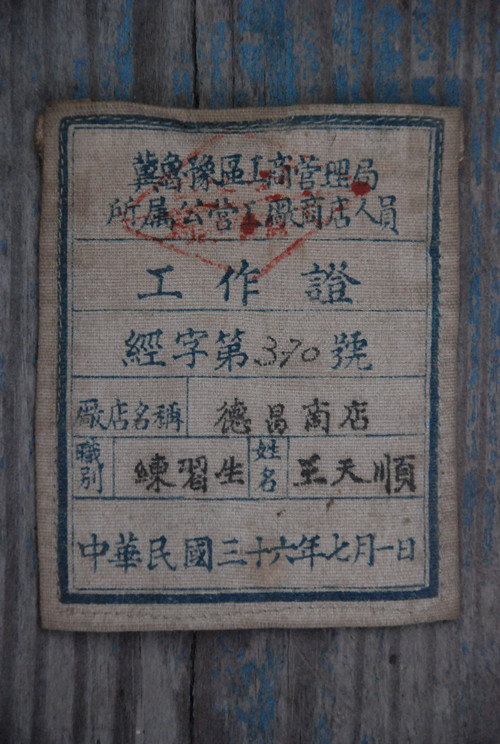 冀魯豫區工商管理局
所属公营工廠商店人員
工作證
經字第370號
廠店名稱 德昌商店
職別 練習生 姓名 王天順
中華民國三十六年七月一日